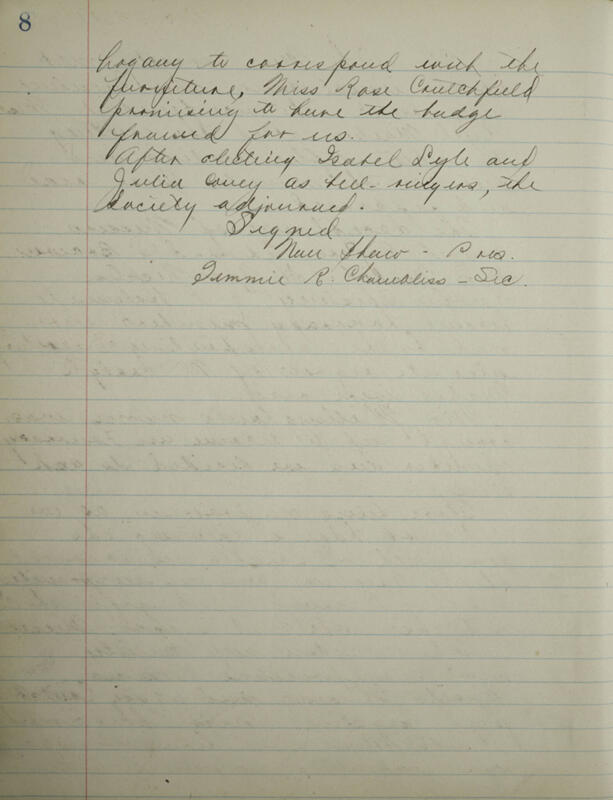 8
hogany to correspond with the
furniture, Miss Rose Crutchfield
promising to have the badge
framed for us.
After electing Isabel Lyle and
Julia Covey as bell-ringers, the
Society adjourned.
Signed
Nan Shaw - Pres.
Temmie R. Chambliss - Sec.